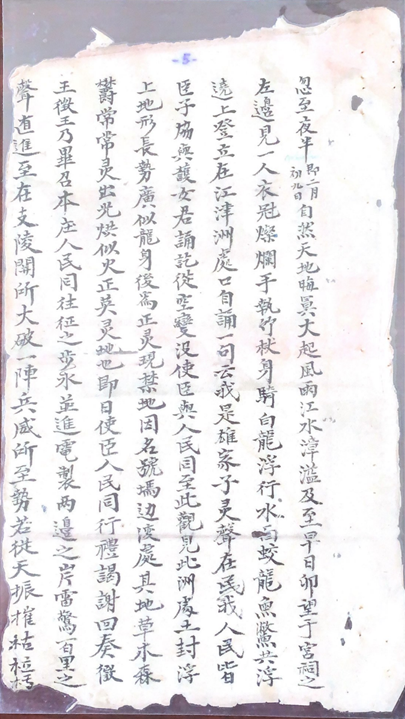 -5-
忽至夜半即二月初九日自然天地晦冥大起風雨江水漳溢及至早日卯望于宮祠之
左邊見一人衣冠燦爛手執竹杖身騎白龍浮行水面蛟龍魚鱉共浮
遶上登立在江津洲處口自誦一句云我是雄家子灵聲在民我人民皆
臣子與護女君誦訖從空變没使臣與人民同至此觀見此洲處土封浮
上地形長勢廣似龍身後寓正灵現禁地因名號塢边陵處其地草木森
欝常常灵出光烘似火正英灵地也即日使臣人民同行禮謁謝回奏徵
王徵王乃畢召本庄人民同往征之步氷並進電製两邊之岸雷驚百里之
聲直進至在支陵關所大破一陣兵威所至勢若從天振摧枯拉朽